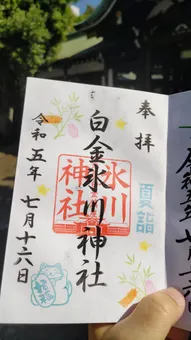 奉拝
夏詣
白金氷川神社
氷川神社
令和五年七月十六日